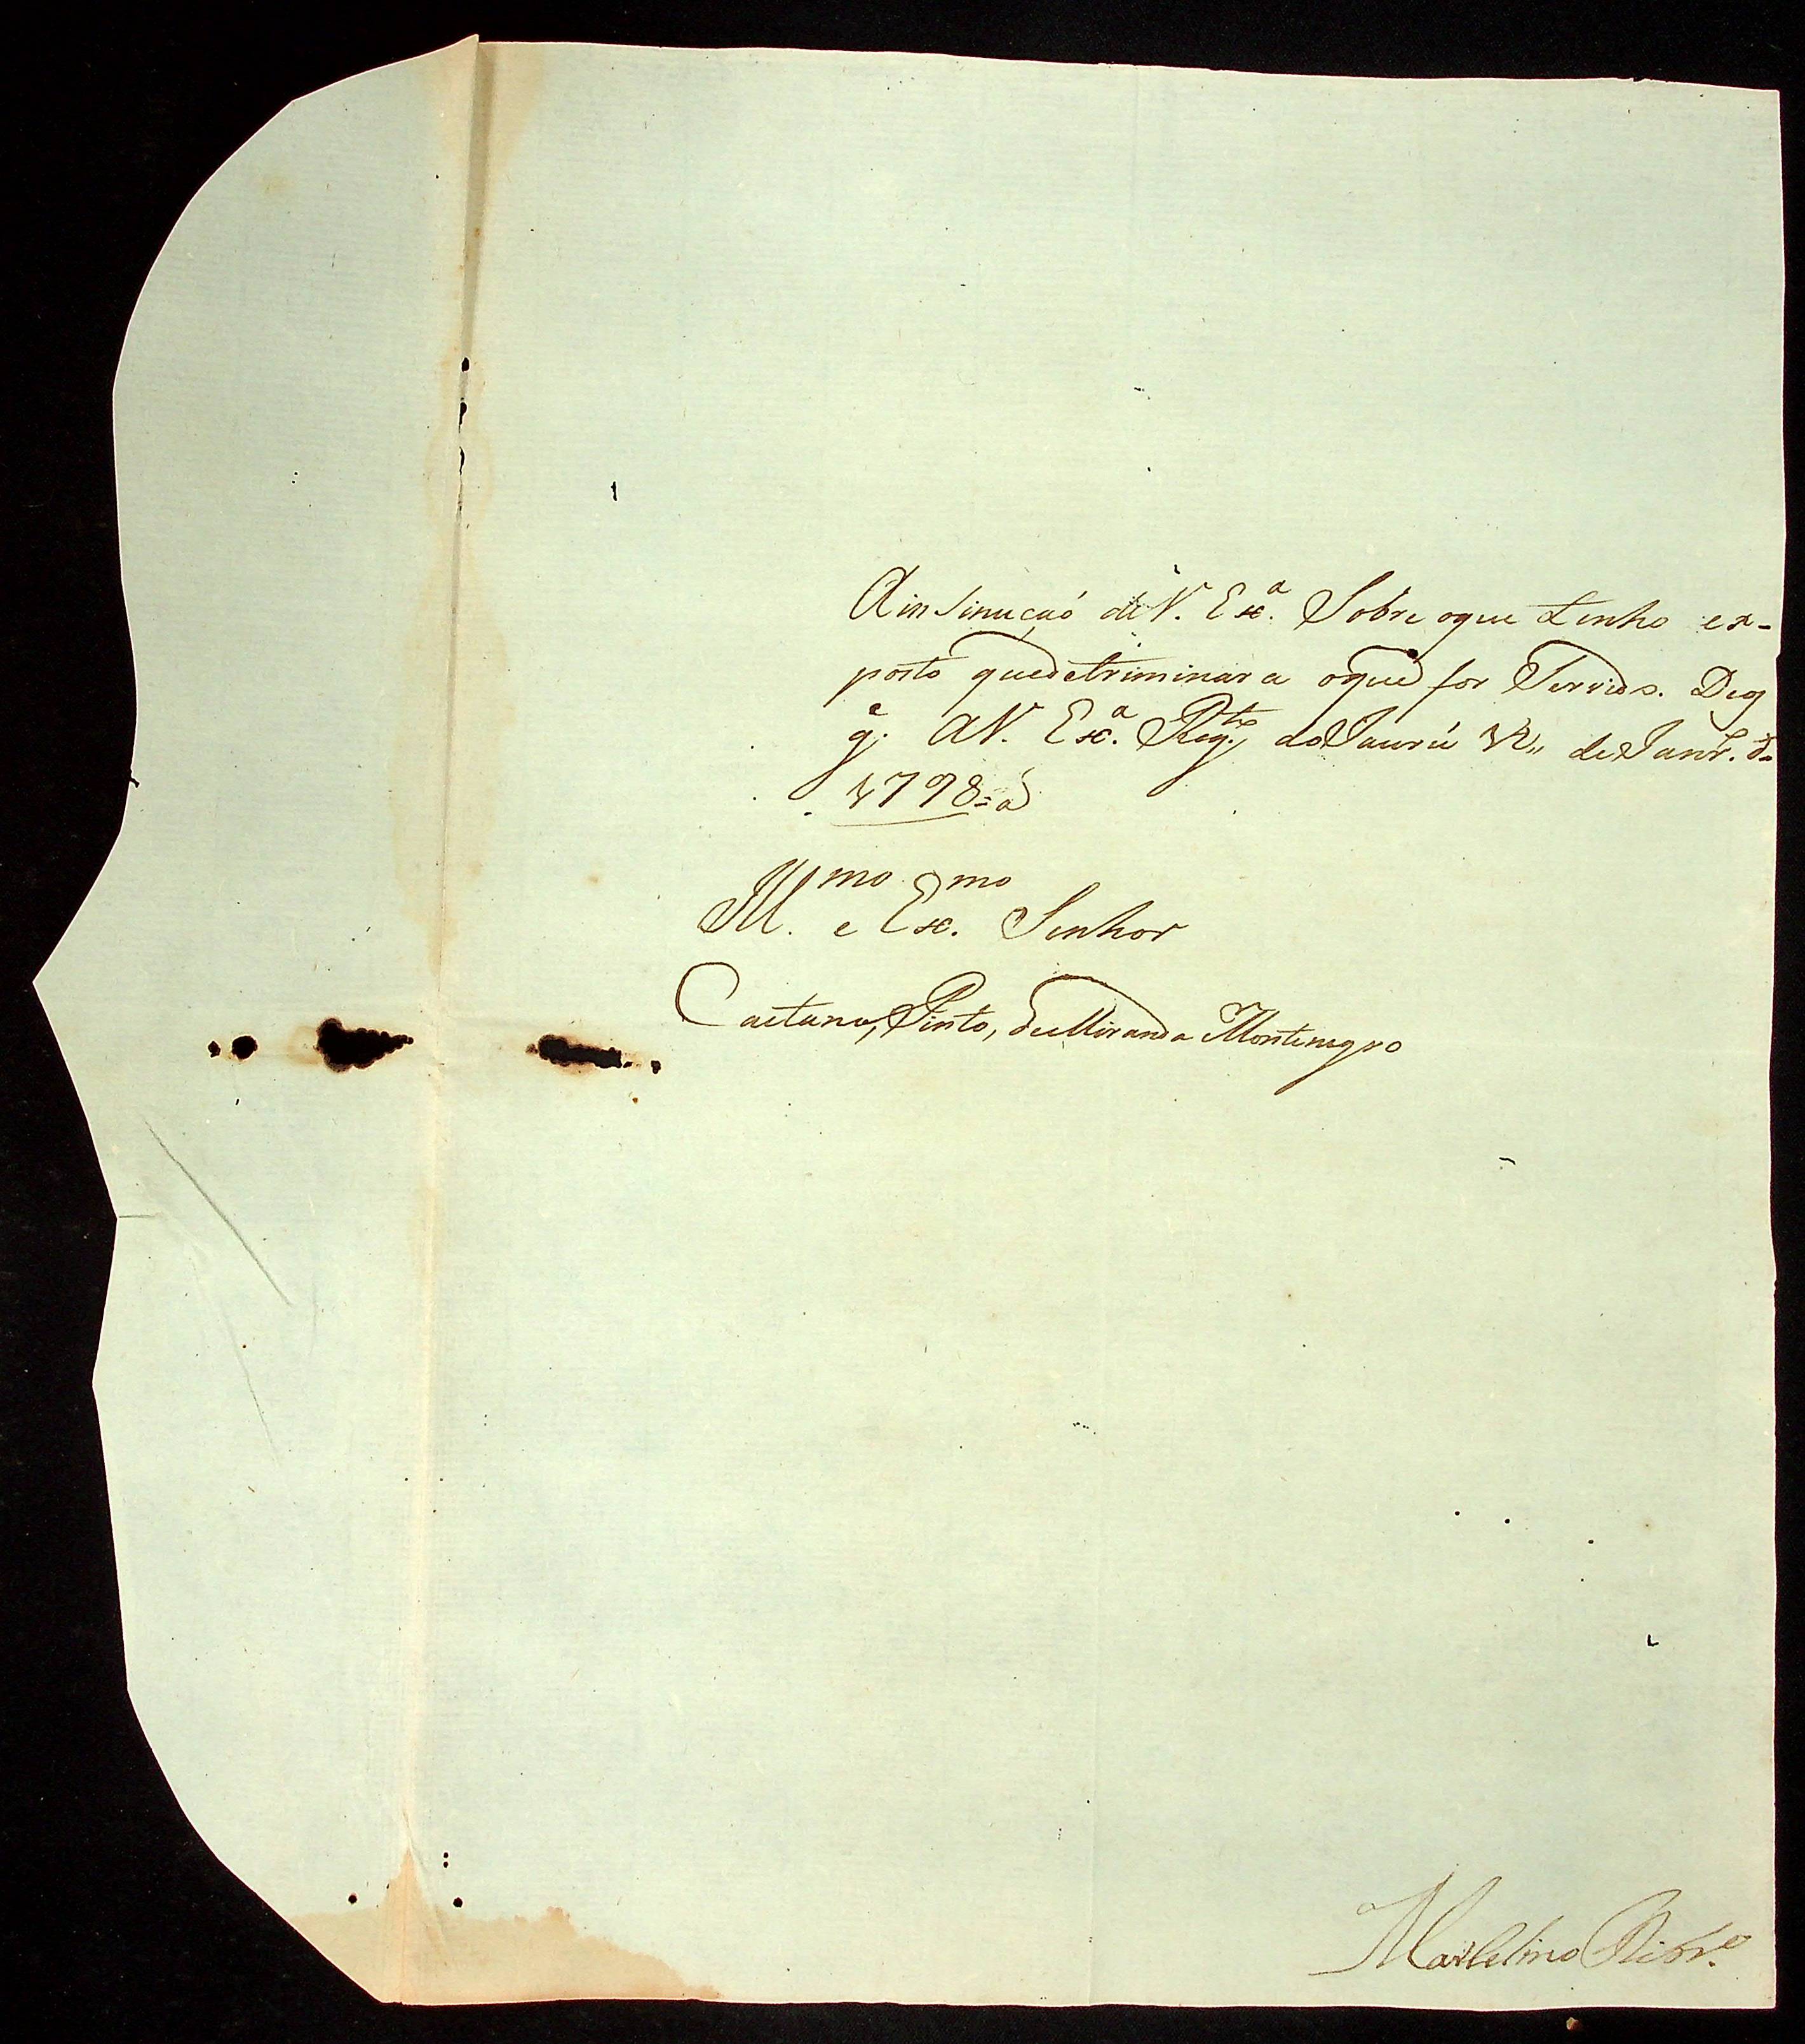 Ainsinuçaó de V. Exª. Sobre oque tenho ex-
posto quedetriminara oque for Servido. Deos
g.e a V. Exª. Reg.to do Jaurú 12,, de Janr.º d.
1798=a
Ill.mo e Ex.mo Senhor
Caetano, Pinto, de Miranda Montenegro
Marcelino Ribr.º